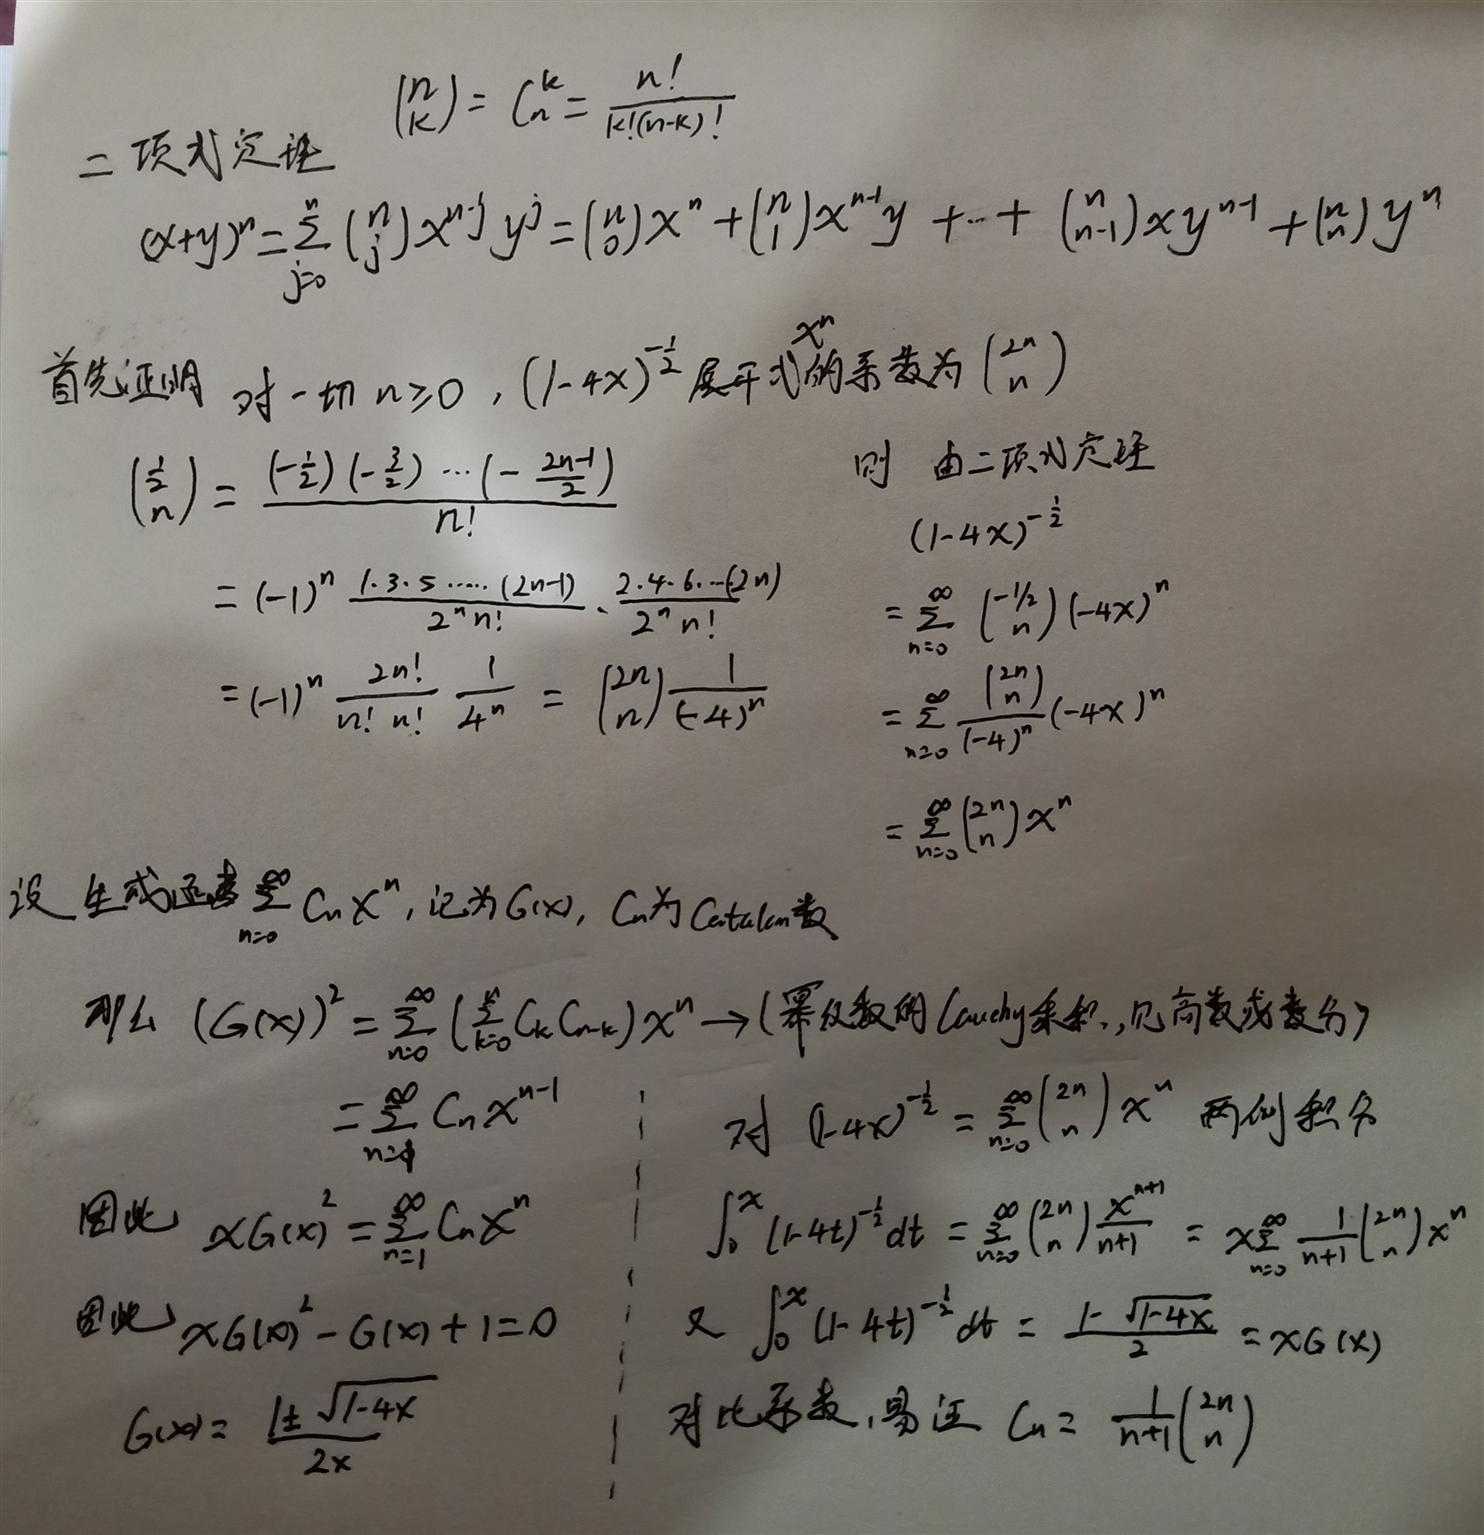 $\binom{n}{k} = C_n^k = \frac{n!}{k!(n-k)!}$
二项式定理
$(x+y)^n = \sum_{j=0}^{n} \binom{n}{j} x^{n-j} y^j = \binom{n}{0} x^n + \binom{n}{1} x^{n-1} y + \cdots + \binom{n}{n-1} x y^{n-1} + \binom{n}{n} y^n$
首先证明 对一切 $n \geq 0$, $(1-4x)^{-\frac{1}{2}}$ 展开式 $x^n$ 的系数为 $\binom{2n}{n}$
$\binom{\frac{1}{2}}{n} = \frac{(-\frac{1}{2})(-\frac{3}{2}) \cdots (-\frac{2n-1}{2})}{n!}$
$= (-1)^n \frac{1 \cdot 3 \cdot 5 \cdots (2n-1)}{2^n n!} \cdot \frac{2 \cdot 4 \cdot 6 \cdots (2n)}{2^n n!}$
$= (-1)^n \frac{2n!}{n! \, n!} \frac{1}{4^n} = \binom{2n}{n} \frac{1}{(-4)^n}$
则 由二项式定理
$(1-4x)^{-\frac{1}{2}}$
$= \sum_{n=0}^{\infty} \binom{-1/2}{n} (-4x)^n$
$= \sum_{n=0}^{\infty} \frac{\binom{2n}{n}}{(-4)^n} (-4x)^n$
$= \sum_{n=0}^{\infty} \binom{2n}{n} x^n$
设 生成函数 $\sum_{n=0}^{\infty} C_n x^n$, 记为 $G(x)$, $C_n$为 Catalan数
那么 $(G(x))^2 = \sum_{n=0}^{\infty} (\sum_{k=0}^{n} C_k C_{n-k}) x^n$ → (幂级数的Cauchy乘积, 见高数或数分)
$= \sum_{n=1}^{\infty} C_n x^{n-1}$
因此 $xG(x)^2 = \sum_{n=1}^{\infty} C_n x^n$
因此 $xG(x)^2 - G(x) + 1 = 0$
$G(x) = \frac{1 \pm \sqrt{1-4x}}{2x}$
对 $(1-4x)^{-\frac{1}{2}} = \sum_{n=0}^{\infty} \binom{2n}{n} x^n$ 两侧积分
$\int_0^x (1-4t)^{-\frac{1}{2}} dt = \sum_{n=0}^{\infty} \binom{2n}{n} \frac{x^{n+1}}{n+1} = x \sum_{n=0}^{\infty} \frac{1}{n+1} \binom{2n}{n} x^n$
又 $\int_0^x (1-4t)^{-\frac{1}{2}} dt = \frac{1-\sqrt{1-4x}}{2} = xG(x)$
对比系数, 易证 $C_n = \frac{1}{n+1} \binom{2n}{n}$